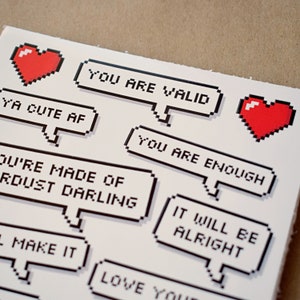 YOU ARE VALID
YA CUTE AF
YOU ARE ENOUGH
YOU'RE MADE OF
RDUST DARLING
IT WILL BE
ALRIGHT
MAKE IT
LOVE